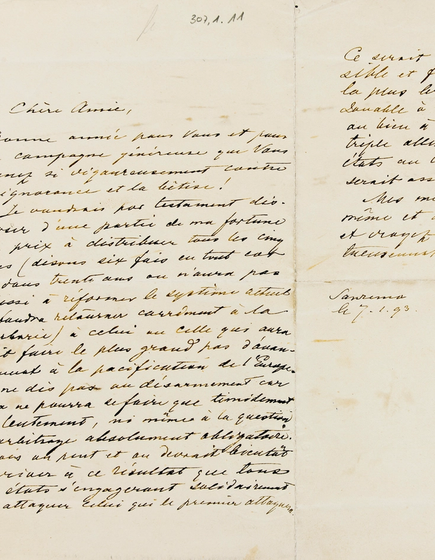 307, A. 11
Chère Amie,
bonne année pour Vous et pour
campagne généreuse que Vous
menez si vigoureusement contre
l'ignorance et la bêtise!
Je voudrais par testament dis-
poser d'une partie de ma fortune
prix à distribuer tous les cinq
(disons six fois en tout car
dans trente ans on n'aura pas
ussi à réformer le système actuel
faudra retourner carrément à la
barbarie) à celui ou celle qui aura
it faire le plus grand pas d'avan-
à la pacification de l'Europe
ne dis pas au désarmement car
a ne pourra se faire que timidement
lentement, ni même à la question
arbitrage absolument obligatoire.
ais on peut et on devrait bientôt
rriver à ce résultat que tous
états s'engagerant solidairement
attaquer celui qui le premier attaquera
Ce serait
sible et f
la plus le
Douable à
au bien à
triple alli
états au l
serait ass
Mes me
même et
et
Sanremo
le 7.1.93.